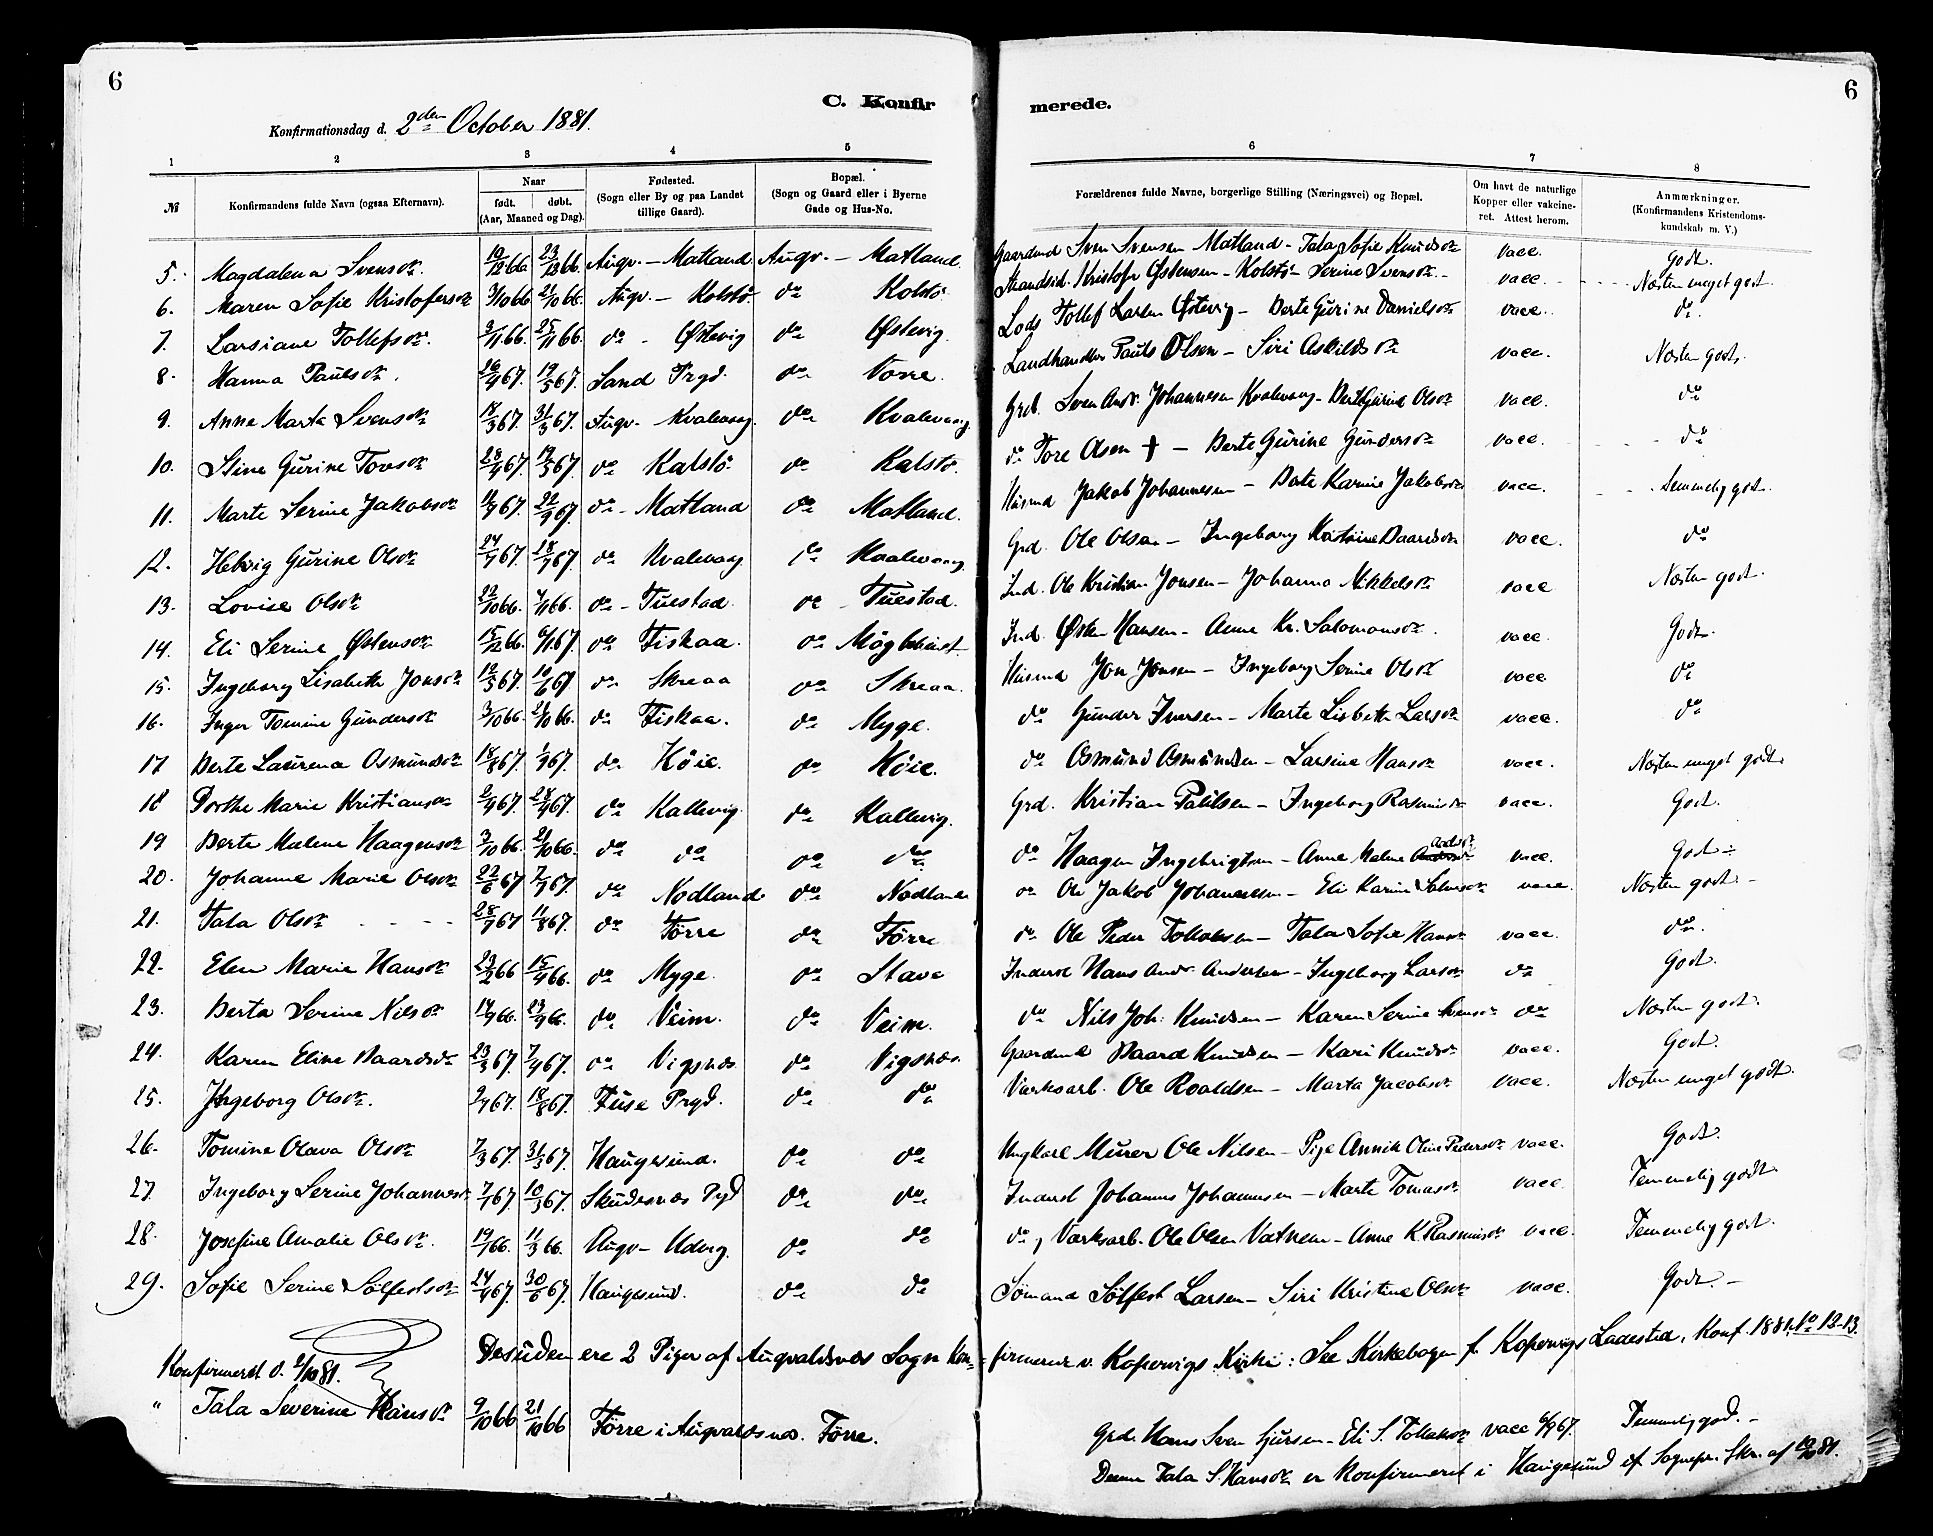 6
C. Konfirmerede.
6
Konfirmationsdag d. 2den October 1881.
1 2 3 4 5 6 7 8
№ Konfirmandens fulde Navn (ogsaa Efternavn). Naar født. døbt. (Aar, Maaned og Dag). Fødested. (Sogn eller By og paa Landet tillige Gaard). Bopæl. (Sogn og Gaard eller i Byerne Gade og Hus-No. Forældrenes fulde Navne, borgerlige Stilling (Næringsvei) og Bopæl. Om havt de naturlige Kopper eller vakcineret. Attest herom. Anmærkninger. (Konfirmandens Kristendomskundskab m. V.)
5. Magdalena Svensdr. 10/12 66 23/12 66. Augv. - Matland Augv. - Matland. Gaardmd Sven Svensen Matland - Tala Sofie Knudsdr vacc. Godt.
6. Maren Sofie Kristofersdr 3/10 66 21/10 66. Augv. - Kolstö do Kolstö Strandsid. Kristofer Østensen - Kolstö - Serine Svensdr - vacc. Næsten meget godt
7. Larsiane Tollefsdr. 3/11 66. 25/11 66. do - Østevig do Østevig Lods Tollef Larsen Østevig - Berte Gurine Danielsdr vacc. do.
8. Hanna Paulsdr. 26/4 67. 19/5 67. Sand Prgd. do Vorre. Landhandler Pauls Olsen - Siri Askildsdr vacc. Næsten godt.
9. Anna Marta Svensdr 18/3 67. 31/3 67. Augv. Kvalevaag. do Kvalevaag Grd. Sven Andr. Johannesen Kvalevaag - Berte Gurine Olsdr vacc. do
10. Stine Gurine Toresdr 28/4 67. 19/5 67. do Kalstö do Kalstö. do Tore Olsen † - Berte Gurine Gundersdr vacc. do
11. Marte Serine Jakobsdr 11/9 67. 22/9 67. do - Matland do Matland. Husmd Jakob Johannesen - Berte Karine Jakobsdr vacc. temmelig godt.
12. Hebvig Gurine Olsdr 24/7 67. 28/7 67. do Kvalevaag do Kvalevaag. Grd. Ole Olsen - Ingeborg Katrine Baardsdr vacc. do
13. Lovise Olsdr 22/10 66. 4/11 66. do - Tuestad. do - Tuestad. Ind. Ole Kristian Jonsen - Johanna Mikkelsdr vacc. Næsten godt.
14. Eli Serine Østensdr 15/12 66. 6/1 67. do Fiskaa. do Ind. Østen Hansen - Anne Kr. Salomonsdr. vacc. Godt.
15. Ingeborg Lisabeth Jonsdr 19/5 67. 10/6 67 do Skreaa do Skreaa. Husmd Jon Jonsen - Ingeborg Serine Olsdr vacc. do
16. Inger Tomine Gundersdr 3/10 66. 21/10 66. do Fiskaa. do Myge. do Gunder Iversen - Marte Lisbeth Larsdr vacc. do
17 Berte Laurena Osmundsdr 18/8 67. 1/9 67. do Höie. do Höie. do Osmund Osmundsen - Larsine Hansdr vacc. Næsten meget godt
18 Dorthe Marie Kristiansdr 2/4 67. 28/4 67. do Kallevig. do Kallevig. Grd. Kristian Paulsen - Ingeborg Rasmusdr vacc. Godt.
19 Berte Malene Haagensdr 3/10 66. 21/10 66. do do do do do Haagen Ingebrigtsen - Anne Malene vacc. Godt
20. Johanne Marie Olsdr 22/6 67 7/7 67. do Nodland do Nodland do Ole Jakob Johannessen - Eli Karine vacc. Næsten godt -
21. Tala Olsdr 28/7 67 11/8 67. do Førre do Førre do Ole Peder Tollaksen - Tala Sofie Hansdr vacc. do.
22. Elen Marie Hansdr 23/2 66 15/4 66. do Myge. do Stava Inderst Hans Andr. Andersen - Ingeborg Larsdr do Godt.
23. Berta Serine Nilsdr 14/9 66. 23/9 66. do Veim. do Veim. do Nils Joh. Knudsen - Karen Serine Svensdr do Næsten godt.
24. Karen Eline Baardsdr 23/3 67. 7/4 67. do Vigsnæs do Vigsnæs. Gaardmd Baard Knudsen - Kari Knudsdr vacc. Godt.
25. Ingeborg Olsdr. 2/4 67. 18/8 67. Fuse Prgd. do do Værksarb. Ole Roaldsen - Marta Jacobsdr vacc. Næsten meget godt.
26. Tomine Olava Olsdr 7/3 67. 31/3 67. Haugesund. do do Ungkarl Murer Ole Nilsen - Pige Annik Oline Pedersdr vacc. Godt.
27. Ingeborg Serine Johannesdr 7/1 67. 10/3 67. Skudesnæs Pgd do do Inderst Johannes Johannesen - Marte Tomasdr vacc. Temmelig godt
28. Josefine Amalie Olsdr. 19/1 66. 11/3 66. Augv - Udvig. do do do, Værksarb. Ole Olsen Vatnem - Anne K. Rasmusdr vacc. Temmelig godt.
29. Sofie Serine Sølfestsdr 24/4 67. 30/6 67. Haugesund. do do Sömand Sølfest Larsen - Siri Kristine Olsdr vacc. Godt. -
Desuden ere 2 Piger af Augvaldsnæs Sogn konfirmerede v. Kopervigs Kirke: See Kirkebogen f. Kopervigs Ladested, Konf. 1881, No 12-13.
Konfirmeret d. 2/10 81.
" Tala Severine Hansdr 9/10 66 21/10 66 Førre i Augvaldsnæs. Førre. Grd. Hans Sven Sjursen - Eli S. Tollaksdr vacc 6/9 67. Temmelig god. -
Denne Tala S. Hansdr er konfirmeret i Haugesund ef. Sognepr. Skr. af 19/10 81.